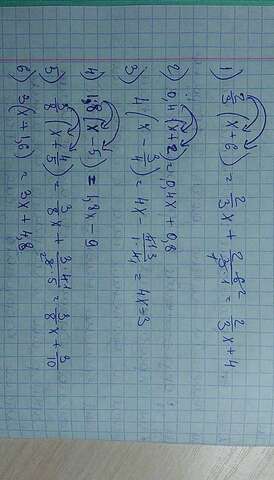 1) 2/3 (x + 6) = 2/3 x + 2·6²/3·1 = 2/3 x + 4
2) 0,4 (x + 2) = 0,4x + 0,8
3) 4 (x - 3/4) = 4x - 4·3/1·4 = 4x - 3
4) 1,8 (x - 5) = 1,8x - 9
5) 3/8 (x + 4/5) = 3/8 x + 3·4 1/2 8·5 = 3/8 x + 3/10
6) 3(x + 1,6) = 3x + 4,8